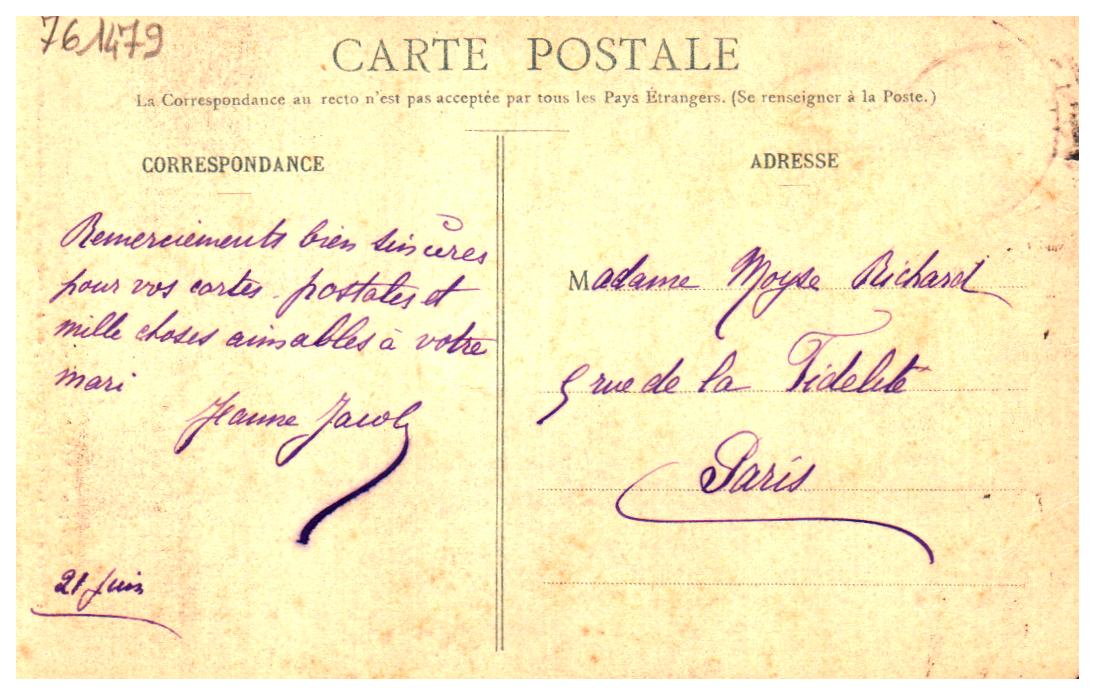 761479
CARTE POSTALE
La Correspondance au recto n'est pas acceptée par tous les Pays Étrangers. (Se renseigner à la Poste.)
CORRESPONDANCE
Remerciements bien sincères
pour vos cartes postales et
mille choses aimables à votre
mari
Jeanne Jacob
21 Juin
ADRESSE
Madame Moyse Richard
5 rue de la Fidelité
Paris